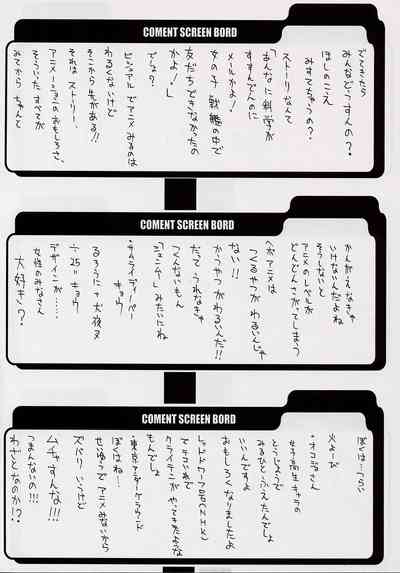 COMENT SCREEN BORD
でてきたら
みんなどーすんの？
ほしのこえ
みすてちゃうの？
ストーリなんて
「あんなに科学が
すすんでんのに
メールかよ！
女の子戦艦の中で
友だちできなかったの
かよ！」
でしょ？
ビジュアルでアニメみるのは
わるくないけど
そこから先がある！！
それはストーリー、
アニメーションのおもしろさ、
そういったすべてが
みてからちゃんと
COMENT SCREEN BORD
かんがえなきゃ
いけないんだよね
そうしないと
アニメのレベルが
どんどんさがってしまう
へボアニメは
つくるやつがわるいんじゃ
ない！！
かうやつがわるいんだ!!
だって、うれなきゃ
つくんないもん
「シュシュー」みたいにね
・サムライディーパー
キョウ
るろうに+犬夜叉
÷25=キョウ
デザインが……
女性のみなさん
大好き、？
COMENT SCREEN BORD
ぼくは…つらい
火よーび
・オコジョさん
女子高生キャラの
とうじょうで
みるひとふえたんでしょ
いいんですよ
おもしろくなりましたよ
レッドドワーフ号(NHK)
テコいれで
クライテンがやってきたような
もんでしょ
・東京アンダーグラウンド
ぼくはね…
せいゆうでアニメみないから
ズバリいうけど
ムチャすんな!!!
つまんないの!!!
わざとなのか!?